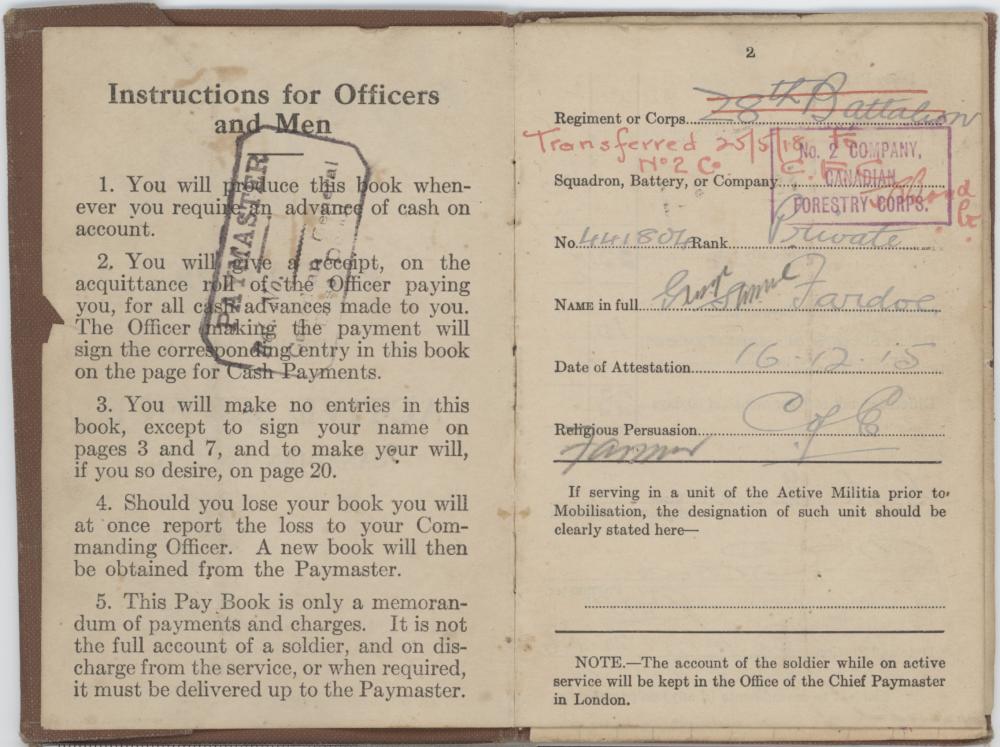 Instructions for Officers
and Men
1. You will produce this book when-
ever you require an advance of cash on
account.
2. You will give a receipt, on the
acquittance roll of the Officer paying
you, for all cash advances made to you.
The Officer making the payment will
sign the corresponding entry in this book
on the page for Cash Payments.
3. You will make no entries in this
book, except to sign your name on
pages 3 and 7, and to make your will,
if you so desire, on page 20.
4. Should you lose your book you will
at once report the loss to your Com-
manding Officer. A new book will then
be obtained from the Paymaster.
5. This Pay Book is only a memoran-
dum of payments and charges. It is not
the full account of a soldier, and on dis-
charge from the service, or when required,
it must be delivered up to the Paymaster.
PAYMASTER
2
Regiment or Corps 28th Battalion
Transferred 25/5/18 to
No 2 Co C.F.C.
No. 2 COMPANY,
CANADIAN
FORESTRY CORPS.
Squadron, Battery, or Company
No. 441804 Rank Private
NAME in full Fardoe
Date of Attestation 16-12-15
Religious Persuasion C of E
Farmer
If serving in a unit of the Active Militia prior to
Mobilisation, the designation of such unit should be
clearly stated here—
NOTE.—The account of the soldier while on active
service will be kept in the Office of the Chief Paymaster
in London.